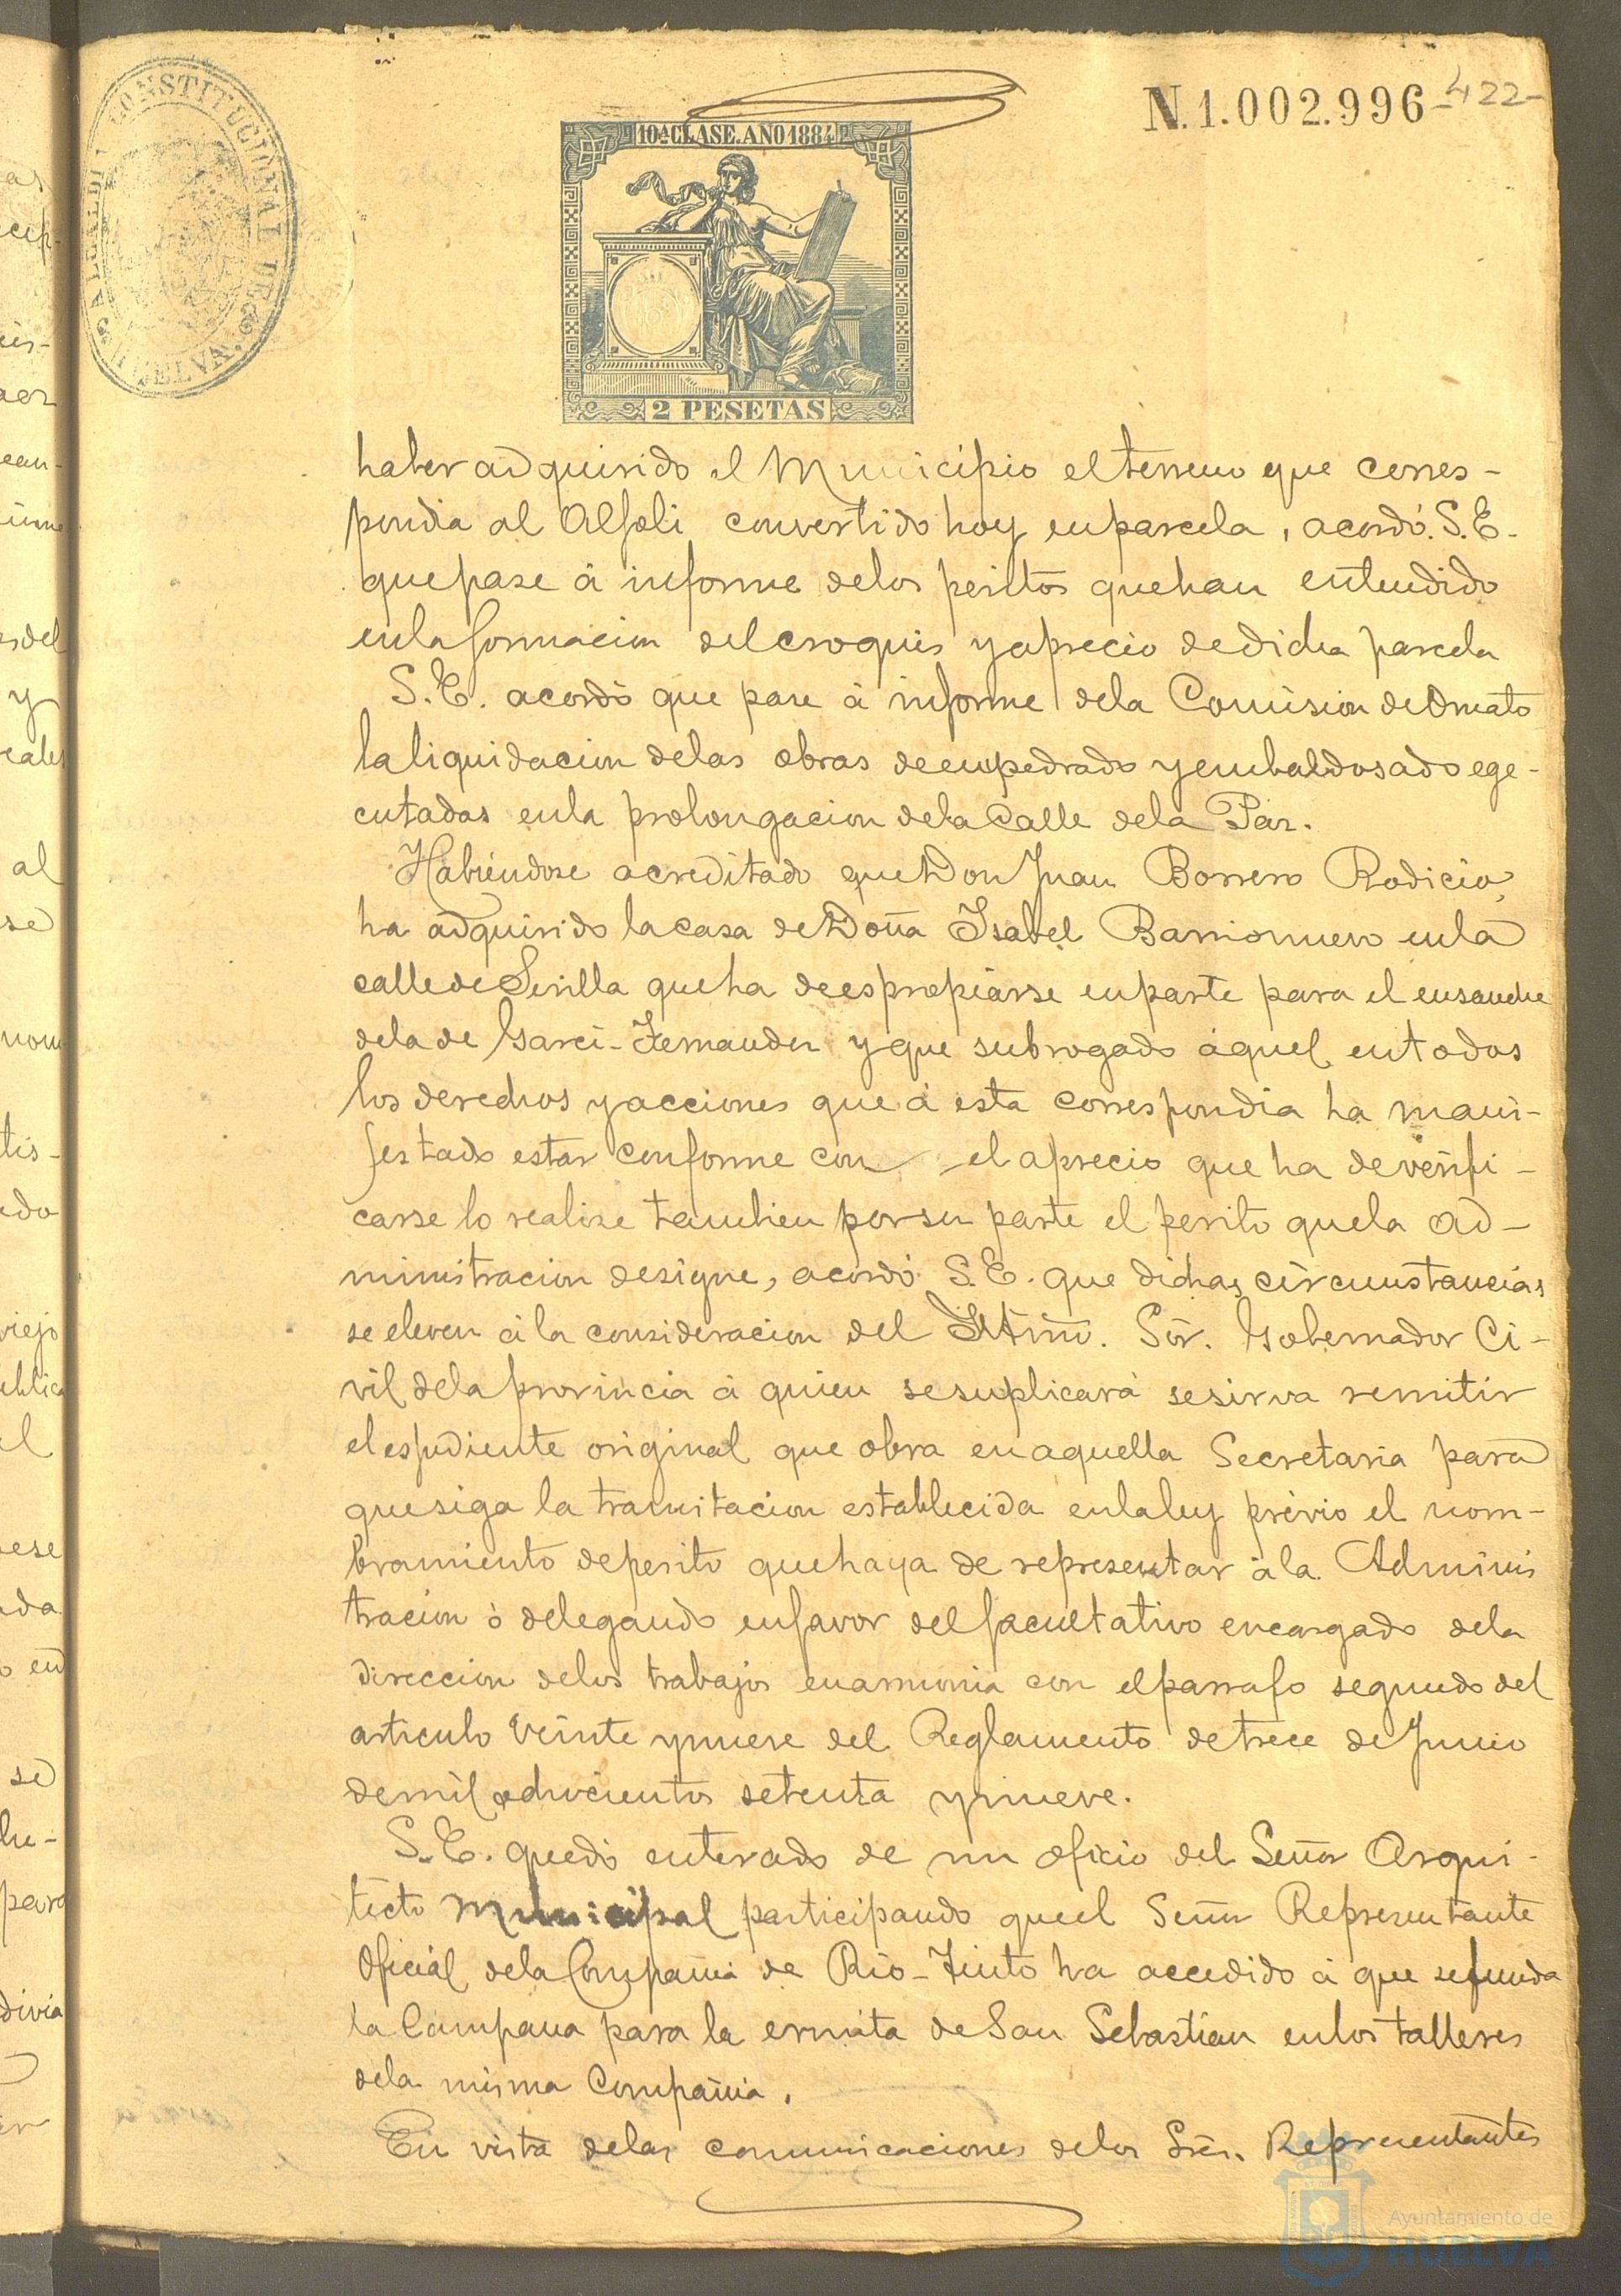 ALCALDIA CONSTITUCIONAL DE HUELVA.
N.1.002.996 -422-
10ª CLASE. AÑO 1884
2 PESETAS
haber adquirido el Municipio el terreno que corres-
pondia al Alfoli convertido hoy en parcela, acordó. S.E.
que pase á informe de los peritos que han entendido
en la formacion del croquis y aprecio de dicha parcela
S.E. acordó que pase á informe de la Comision de Ornato
la liquidacion de las obras de empedrado y embaldosado ege-
cutadas en la prolongacion de la Calle de la Paz.
Habiéndose acreditado que Don Juan Borrero Rodicio,
ha adquirido la casa de Doña Isabel Barrionuevo en la
calle de Sevilla que ha de espropiarse en parte para el ensanche
de la de Garci-Fernandez y que subrogado áquel en todos
los derechos y acciones que á esta correspondia ha mani-
festado estar conforme con el aprecio que ha de verifi-
carse lo realize tambien por su parte el perito que la ad-
ministracion designe, acordó S.E. que dichas circunstancias
se eleven á la consideracion del Iltmo. Sór. Gobernador Ci-
vil de la provincia á quien se suplicará se sirva remitir
el espediente original que obra en aquella Secretaria para
que siga la tramitacion establecida en la ley prévio el nom-
bramiento de perito que haya de representar á la Adminis
tracion ó delegando en favor del facultativo encargado de la
direccion de los trabajos en armonia con el parrafo segundo del
articulo veinte y nueve del Reglamento de trece de Junio
de mil ochocientos setenta y nueve.
S.E. quedó enterado de un oficio del Señor Arqui-
tecto Municipal participando que el Señor Representante
Oficiál de la Compañia de Rio-Tinto ha accedido á que se funda
la Campana para la ermita de San Sebastian en los talleres
de la misma Compañia.
En vista de las comunicaciones de los Sres. Representantes
Ayuntamiento de
HUELVA